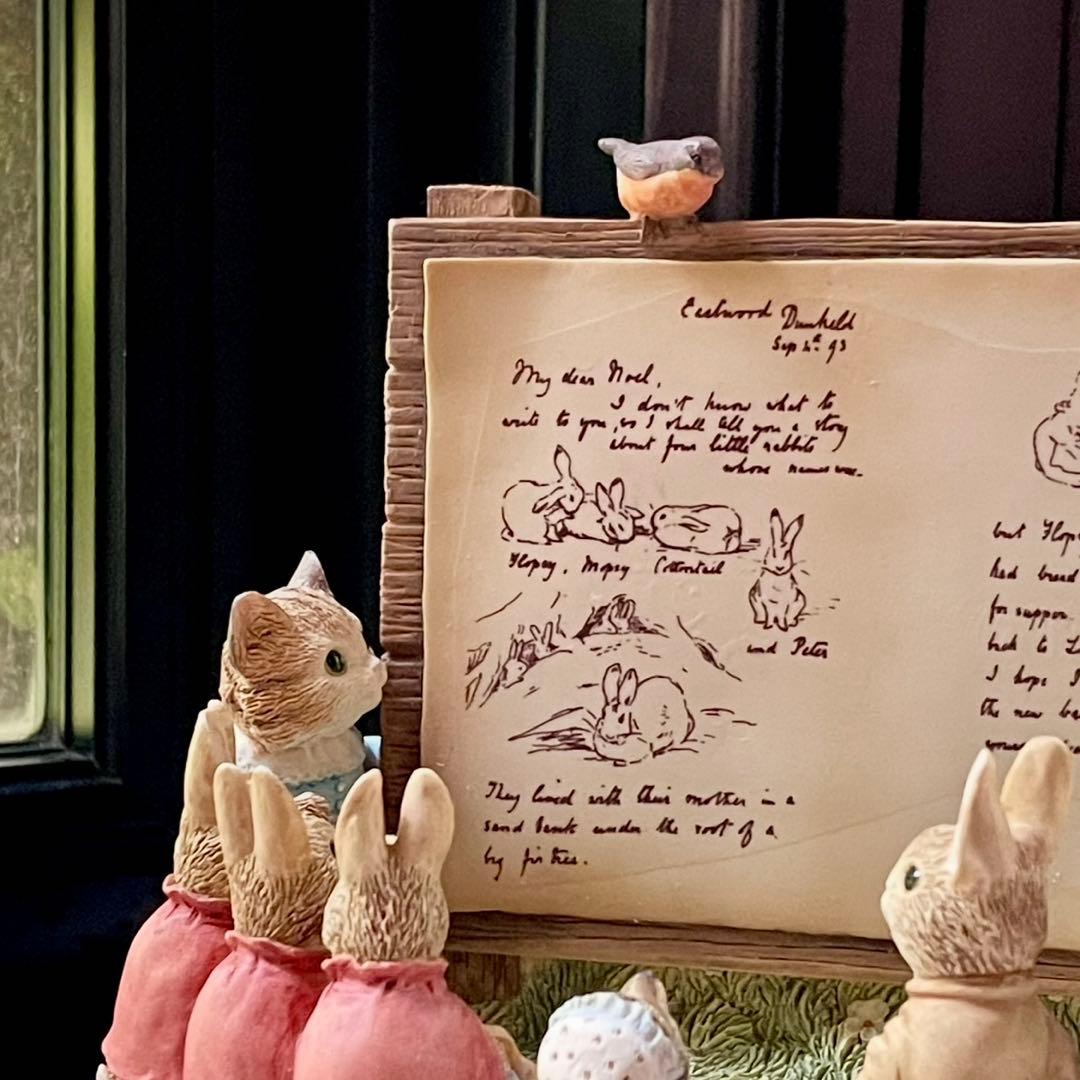 Eastwood Dunkeld
Sep 4th 93
My dear Noel,
I don't know what to
write to you, so I shall tell you a story
about four little rabbits
whose names were
Flopsy, Mopsy Cottontail
and Peter
They lived with their mother in a
sand bank under the root of a
big fir tree.
but Flops
had bread
for supper.
back to L
I hope I
the new ba